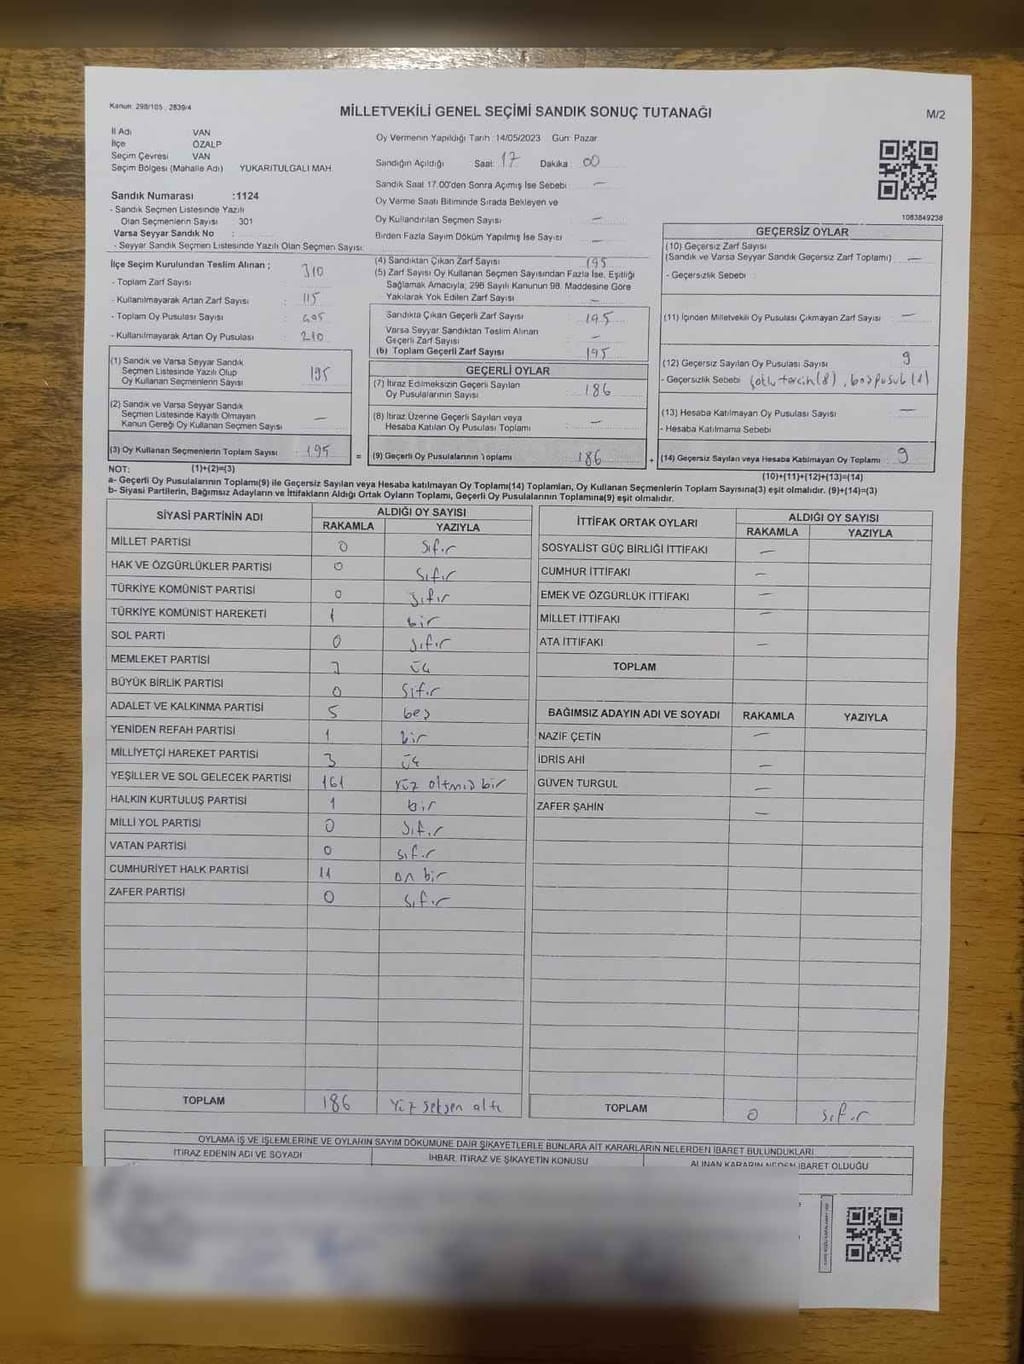 Kanun: 298/105 , 2839/4
MİLLETVEKİLİ GENEL SEÇİMİ SANDIK SONUÇ TUTANAĞI
M/2
İl Adı VAN
İlçe ÖZALP
Seçim Çevresi VAN
Seçim Bölgesi (Mahalle Adı) YUKARITULGALI MAH.
Sandık Numarası :1124
- Sandık Seçmen Listesinde Yazılı
Olan Seçmenlerin Sayısı : 301
Varsa Seyyar Sandık No :
- Seyyar Sandık Seçmen Listesinde Yazılı Olan Seçmen Sayısı:
Oy Vermenin Yapıldığı Tarih :14/05/2023 Gün: Pazar
Sandığın Açıldığı Saat: 17 Dakika : 00
Sandık Saat 17.00'den Sonra Açımış İse Sebebi : —
Oy Verme Saati Bitiminde Sırada Bekleyen ve
Oy Kullandırılan Seçmen Sayısı : —
Birden Fazla Sayım Döküm Yapılmış İse Sayısı : —
1083849238
İlçe Seçim Kurulundan Teslim Alınan ;
- Toplam Zarf Sayısı : 310
- Kullanılmayarak Artan Zarf Sayısı : 115
- Toplam Oy Pusulası Sayısı : 405
- Kullanılmayarak Artan Oy Pusulası : 210
(1) Sandık ve Varsa Seyyar Sandık
Seçmen Listesinde Yazılı Olup
Oy Kullanan Seçmenlerin Sayısı : 195
(2) Sandık ve Varsa Seyyar Sandık
Seçmen Listesinde Kayıtlı Olmayan
Kanun Gereği Oy Kullanan Seçmen Sayısı : —
(3) Oy Kullanan Seçmenlerin Toplam Sayısı : 195
(4) Sandıktan Çıkan Zarf Sayısı : 195
(5) Zarf Sayısı Oy Kullanan Seçmen Sayısından Fazla İse, Eşitliği
Sağlamak Amacıyla, 298 Sayılı Kanunun 98. Maddesine Göre
Yakılarak Yok Edilen Zarf Sayısı : —
Sandıkta Çıkan Geçerli Zarf Sayısı : 195
Varsa Seyyar Sandıktan Teslim Alınan
Geçerli Zarf Sayısı : —
(6) Toplam Geçerli Zarf Sayısı : 195
GEÇERLİ OYLAR
(7) İtiraz Edilmeksizin Geçerli Sayılan
Oy Pusulalarının Sayısı : 186
(8) İtiraz Üzerine Geçerli Sayılan veya
Hesaba Katılan Oy Pusulası Toplamı : —
= (9) Geçerli Oy Pusulalarının Toplamı : 186
GEÇERSİZ OYLAR
(10) Geçersiz Zarf Sayısı
(Sandık ve Varsa Seyyar Sandık Geçersiz Zarf Toplamı) : —
- Geçersizlik Sebebi :
(11) İçinden Milletvekili Oy Pusulası Çıkmayan Zarf Sayısı : —
(12) Geçersiz Sayılan Oy Pusulası Sayısı : 9
- Geçersizlik Sebebi : tercih (8), boş pusula (1)
(13) Hesaba Katılmayan Oy Pusulası Sayısı : —
- Hesaba Katılmama Sebebi :
+ (14) Geçersiz Sayılan veya Hesaba Katılmayan Oy Toplamı : 9
NOT: (1)+(2)=(3)
(10)+(11)+(12)+(13)=(14)
a- Geçerli Oy Pusulalarının Toplamı(9) ile Geçersiz Sayılan veya Hesaba katılmayan Oy Toplamı(14) Toplamları, Oy Kullanan Seçmenlerin Toplam Sayısına(3) eşit olmalıdır. (9)+(14)=(3)
b- Siyasi Partilerin, Bağımsız Adayların ve İttifakların Aldığı Ortak Oyların Toplamı, Geçerli Oy Pusulalarının Toplamına(9) eşit olmalıdır.
SİYASİ PARTİNİN ADI ALDIĞI OY SAYISI
RAKAMLA YAZIYLA
MİLLET PARTİSİ 0 Sıfır
HAK VE ÖZGÜRLÜKLER PARTİSİ 0 Sıfır
TÜRKİYE KOMÜNİST PARTİSİ 0 Sıfır
TÜRKİYE KOMÜNİST HAREKETİ 1 bir
SOL PARTİ 0 Sıfır
MEMLEKET PARTİSİ 3 üç
BÜYÜK BİRLİK PARTİSİ 0 Sıfır
ADALET VE KALKINMA PARTİSİ 5 beş
YENİDEN REFAH PARTİSİ 1 bir
MİLLİYETÇİ HAREKET PARTİSİ 3 üç
YEŞİLLER VE SOL GELECEK PARTİSİ 161 Yüz altmış bir
HALKIN KURTULUŞ PARTİSİ 1 bir
MİLLİ YOL PARTİSİ 0 Sıfır
VATAN PARTİSİ 0 Sıfır
CUMHURİYET HALK PARTİSİ 11 on bir
ZAFER PARTİSİ 0 Sıfır
TOPLAM 186 Yüz seksen altı
İTTİFAK ORTAK OYLARI ALDIĞI OY SAYISI
RAKAMLA YAZIYLA
SOSYALİST GÜÇ BİRLİĞİ İTTİFAKI —
CUMHUR İTTİFAKI —
EMEK VE ÖZGÜRLÜK İTTİFAKI —
MİLLET İTTİFAKI —
ATA İTTİFAKI —
TOPLAM
BAĞIMSIZ ADAYIN ADI VE SOYADI RAKAMLA YAZIYLA
NAZİF ÇETİN —
İDRİS AHİ —
GÜVEN TURGUL —
ZAFER ŞAHİN —
TOPLAM 0 Sıfır
OYLAMA İŞ VE İŞLEMLERİNE VE OYLARIN SAYIM DÖKÜMÜNE DAİR ŞİKAYETLERLE BUNLARA AİT KARARLARIN NELERDEN İBARET BULUNDUKLARI
İTİRAZ EDENİN ADI VE SOYADI İHBAR, İTİRAZ VE ŞİKAYETİN KONUSU ALINAN KARARIN NEDEN İBARET OLDUĞU